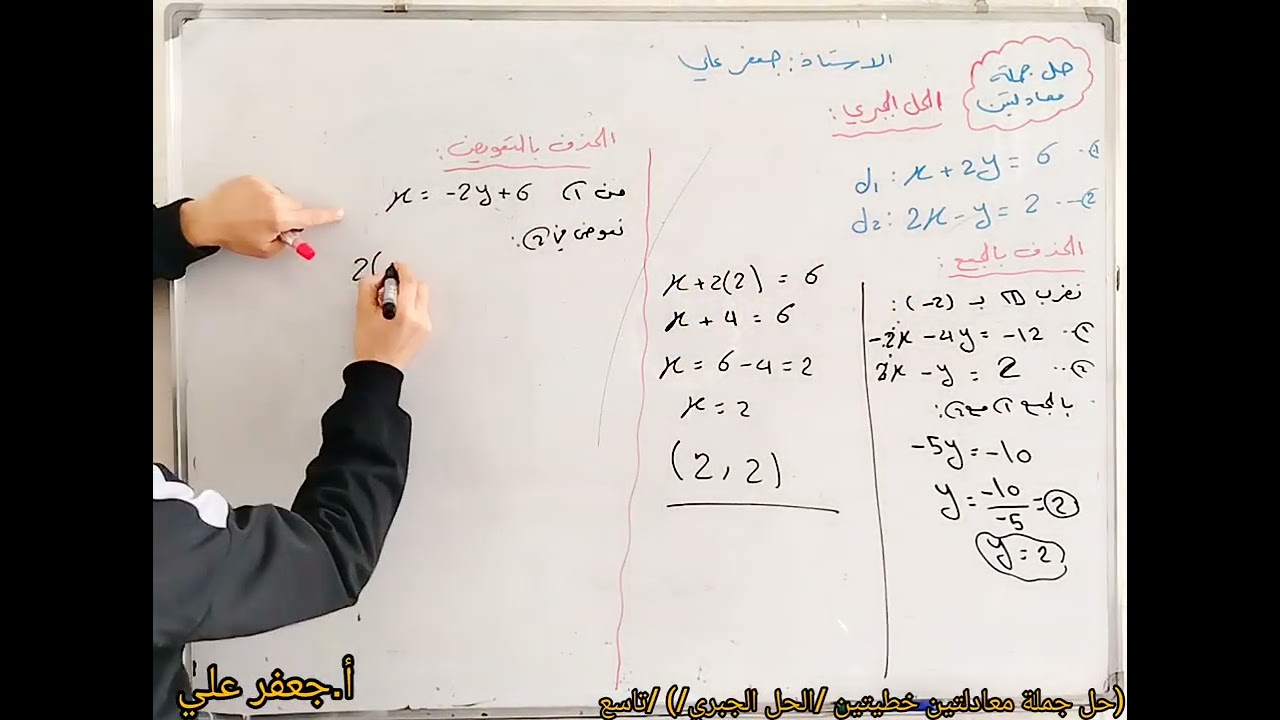 حل جملة
معادلتين
الاستاذ: جعفر علي
الحل الجبري:
d₁: x + 2y = 6 ..①
d₂: 2x - y = 2 ..②
الحذف بالجمع:
نضرب ① بـ (-2):
-2x - 4y = -12 ..①
2x - y = 2 ..②
بالجمع ① مع ②:
-5y = -10
y = -10/-5 = 2
y = 2
x + 2(2) = 6
x + 4 = 6
x = 6 - 4 = 2
x = 2
(2, 2)
الحذف بالتعويض:
من ① x = -2y + 6
نعوض في ②:
2(
أ.جعفر علي
(حل جملة معادلتين خطيتين /الحل الجبري/) /تاسع